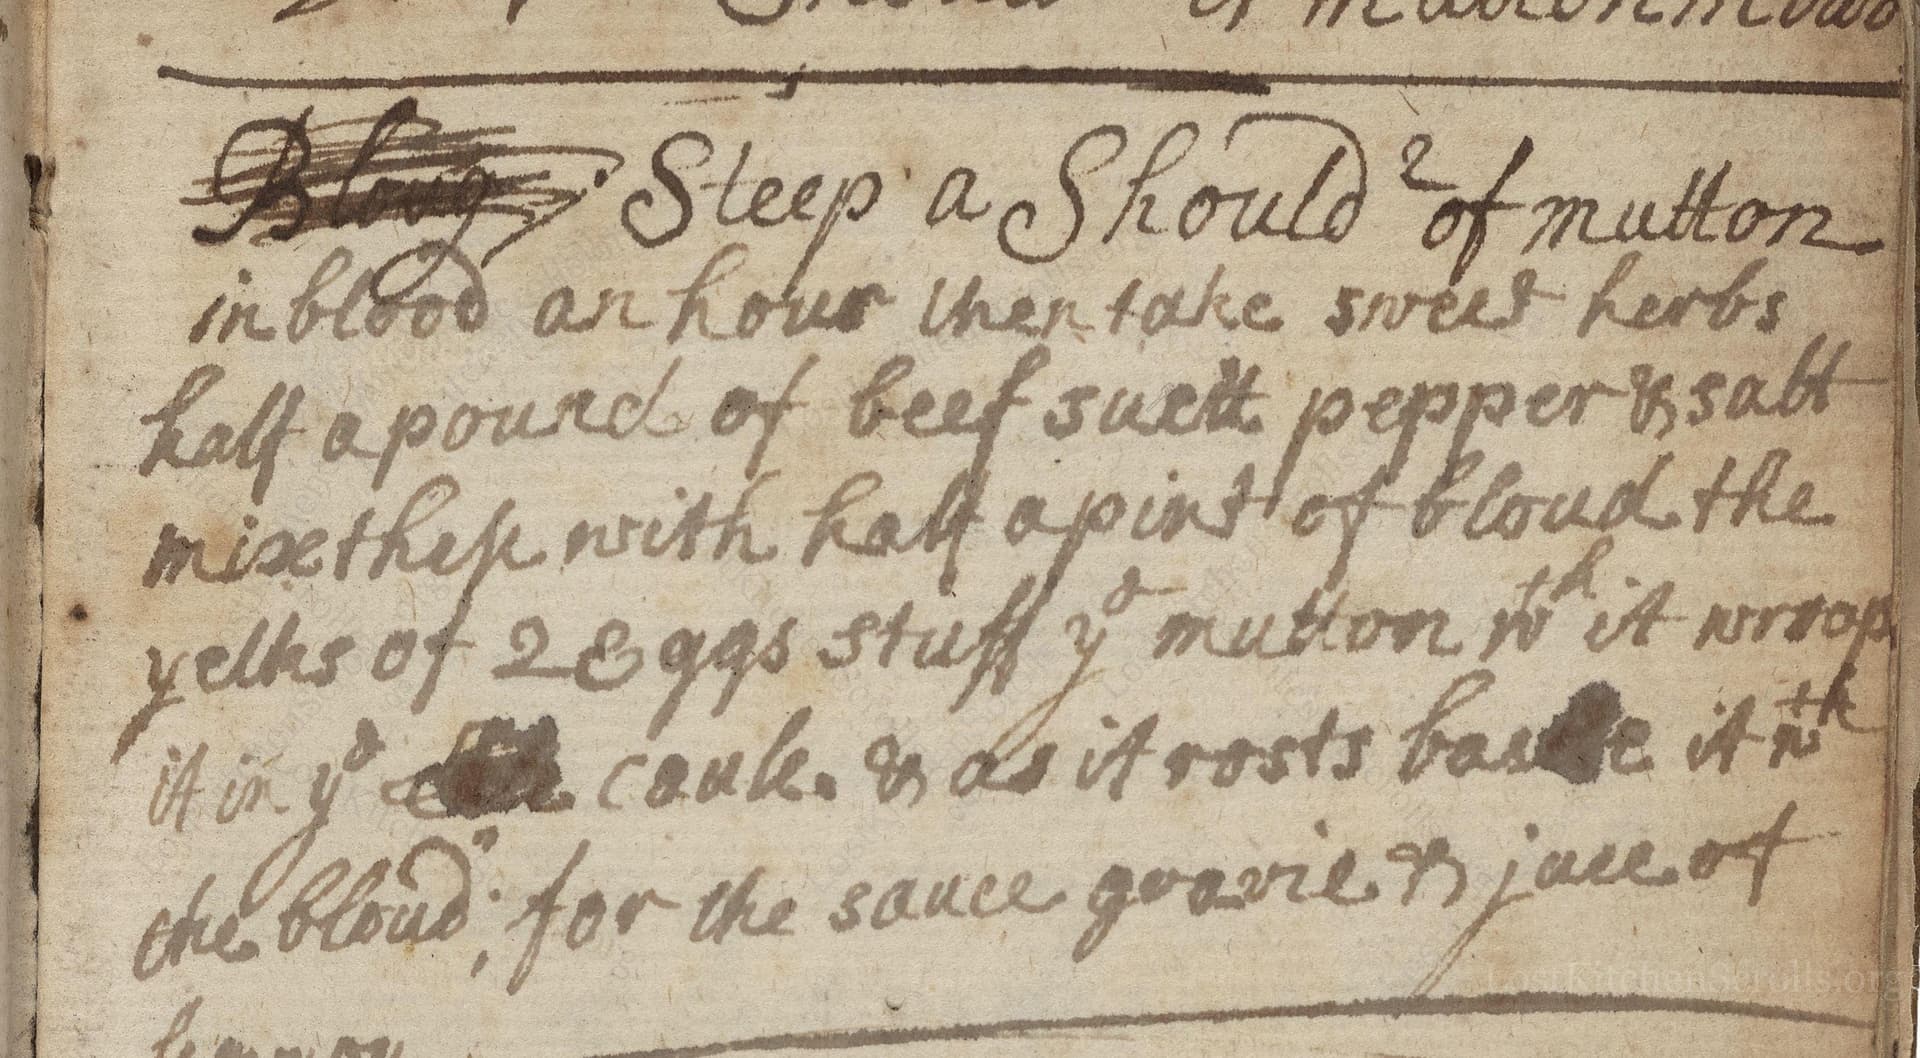 Should of mutton in blood
Steep a Should^r of mutton
in blood an hour then take sweet herbs
half a pound of beef suett pepper & salt
mixe these with half a pint of bloud the
yelks of 2 Eggs stuff y^e mutton w^th it wrap
it in y^e caule. & as it rosts baste it w^th
the bloud; for the sauce gravie & juce of
lemmon
LostKitchenScrolls.org